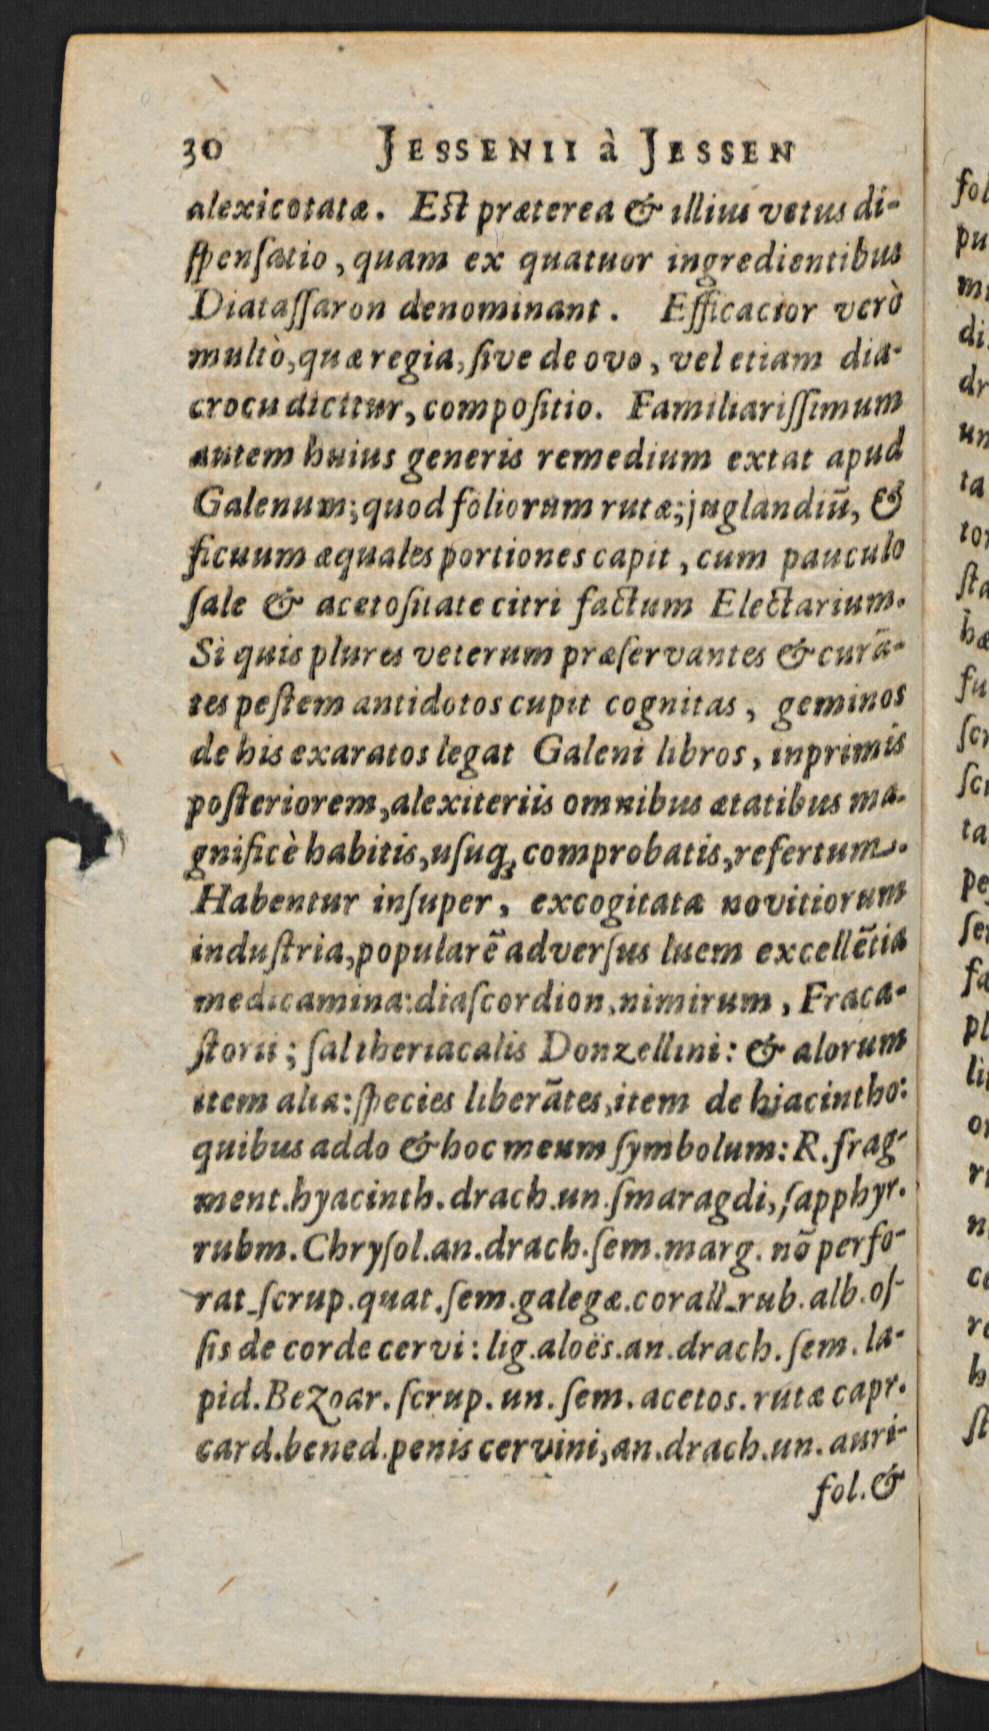 30 JESSENII à JESSEN
alexicotatæ. Est præterea & illius vetus di-
ſpenſatio, quam ex quatuor ingredientibus
Diataſſaron denominant. Efficacior verò
multò, quæ regia, ſive de ovo, vel etiam dia-
crocu dicitur, compoſitio. Familiariſſimum
autem huius generis remedium extat apud
Galenum; quod foliorum rutæ; juglandiũ, &
ficuum æquales portiones capit, cum pauculo
ſale & acetoſitate citri factum Electarium.
Si quis plures veterum præſervantes & curã-
tes peſtem antidotos cupit cognitas, geminos
de his exaratos legat Galeni libros, inprimis
poſteriorem, alexiteriis omnibus ætatibus ma-
gnificè habitis, uſuq; comprobatis, refertum.
Habentur inſuper, excogitata novitiorum
induſtria, popularẽ adverſus luem excellẽtia
medicamina: diaſcordion, nimirum, Fraca-
ſtorii; ſal theriacalis Donzellini: & alorum
item alia: ſpecies liberãtes, item de hiacintho:
quibus addo & hoc meum ſymbolum: R. frag-
ment. hyacinth. drach. un. ſmaragdi, ſapphyr.
rubm. Chryſol. an. drach. ſem. marg. nõ perfo-
rat. ſcrup. quat. ſem. galegæ. corall. rub. alb. oſ-
ſis de corde cervi: lig. aloës. an. drach. ſem. la-
pid. Bezoar. ſcrup. un. ſem. acetos. rutæ capr.
card. bened. penis cervini, an. drach. un. auri-
fol. &